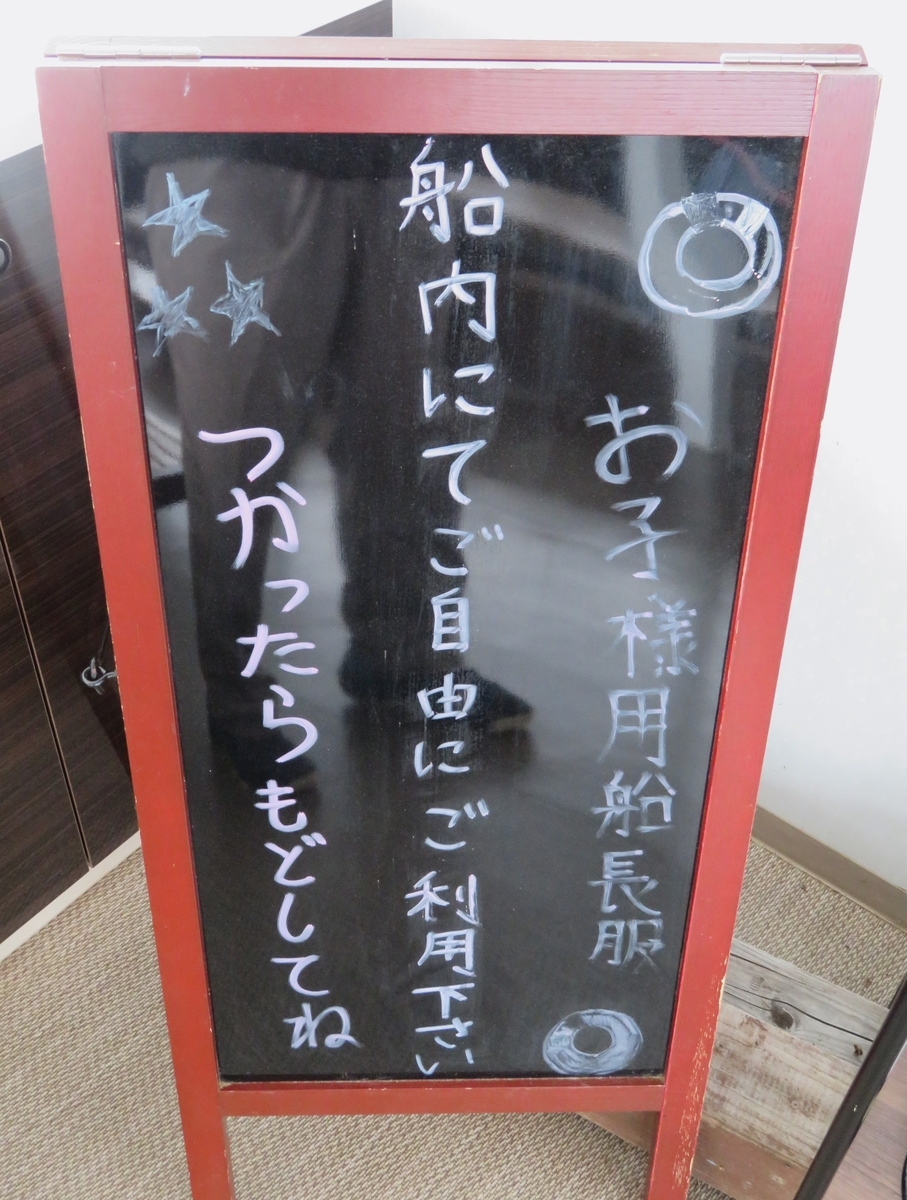 お子様用船長服
船内にてご自由にご利用下さい
つかったらもどしてね